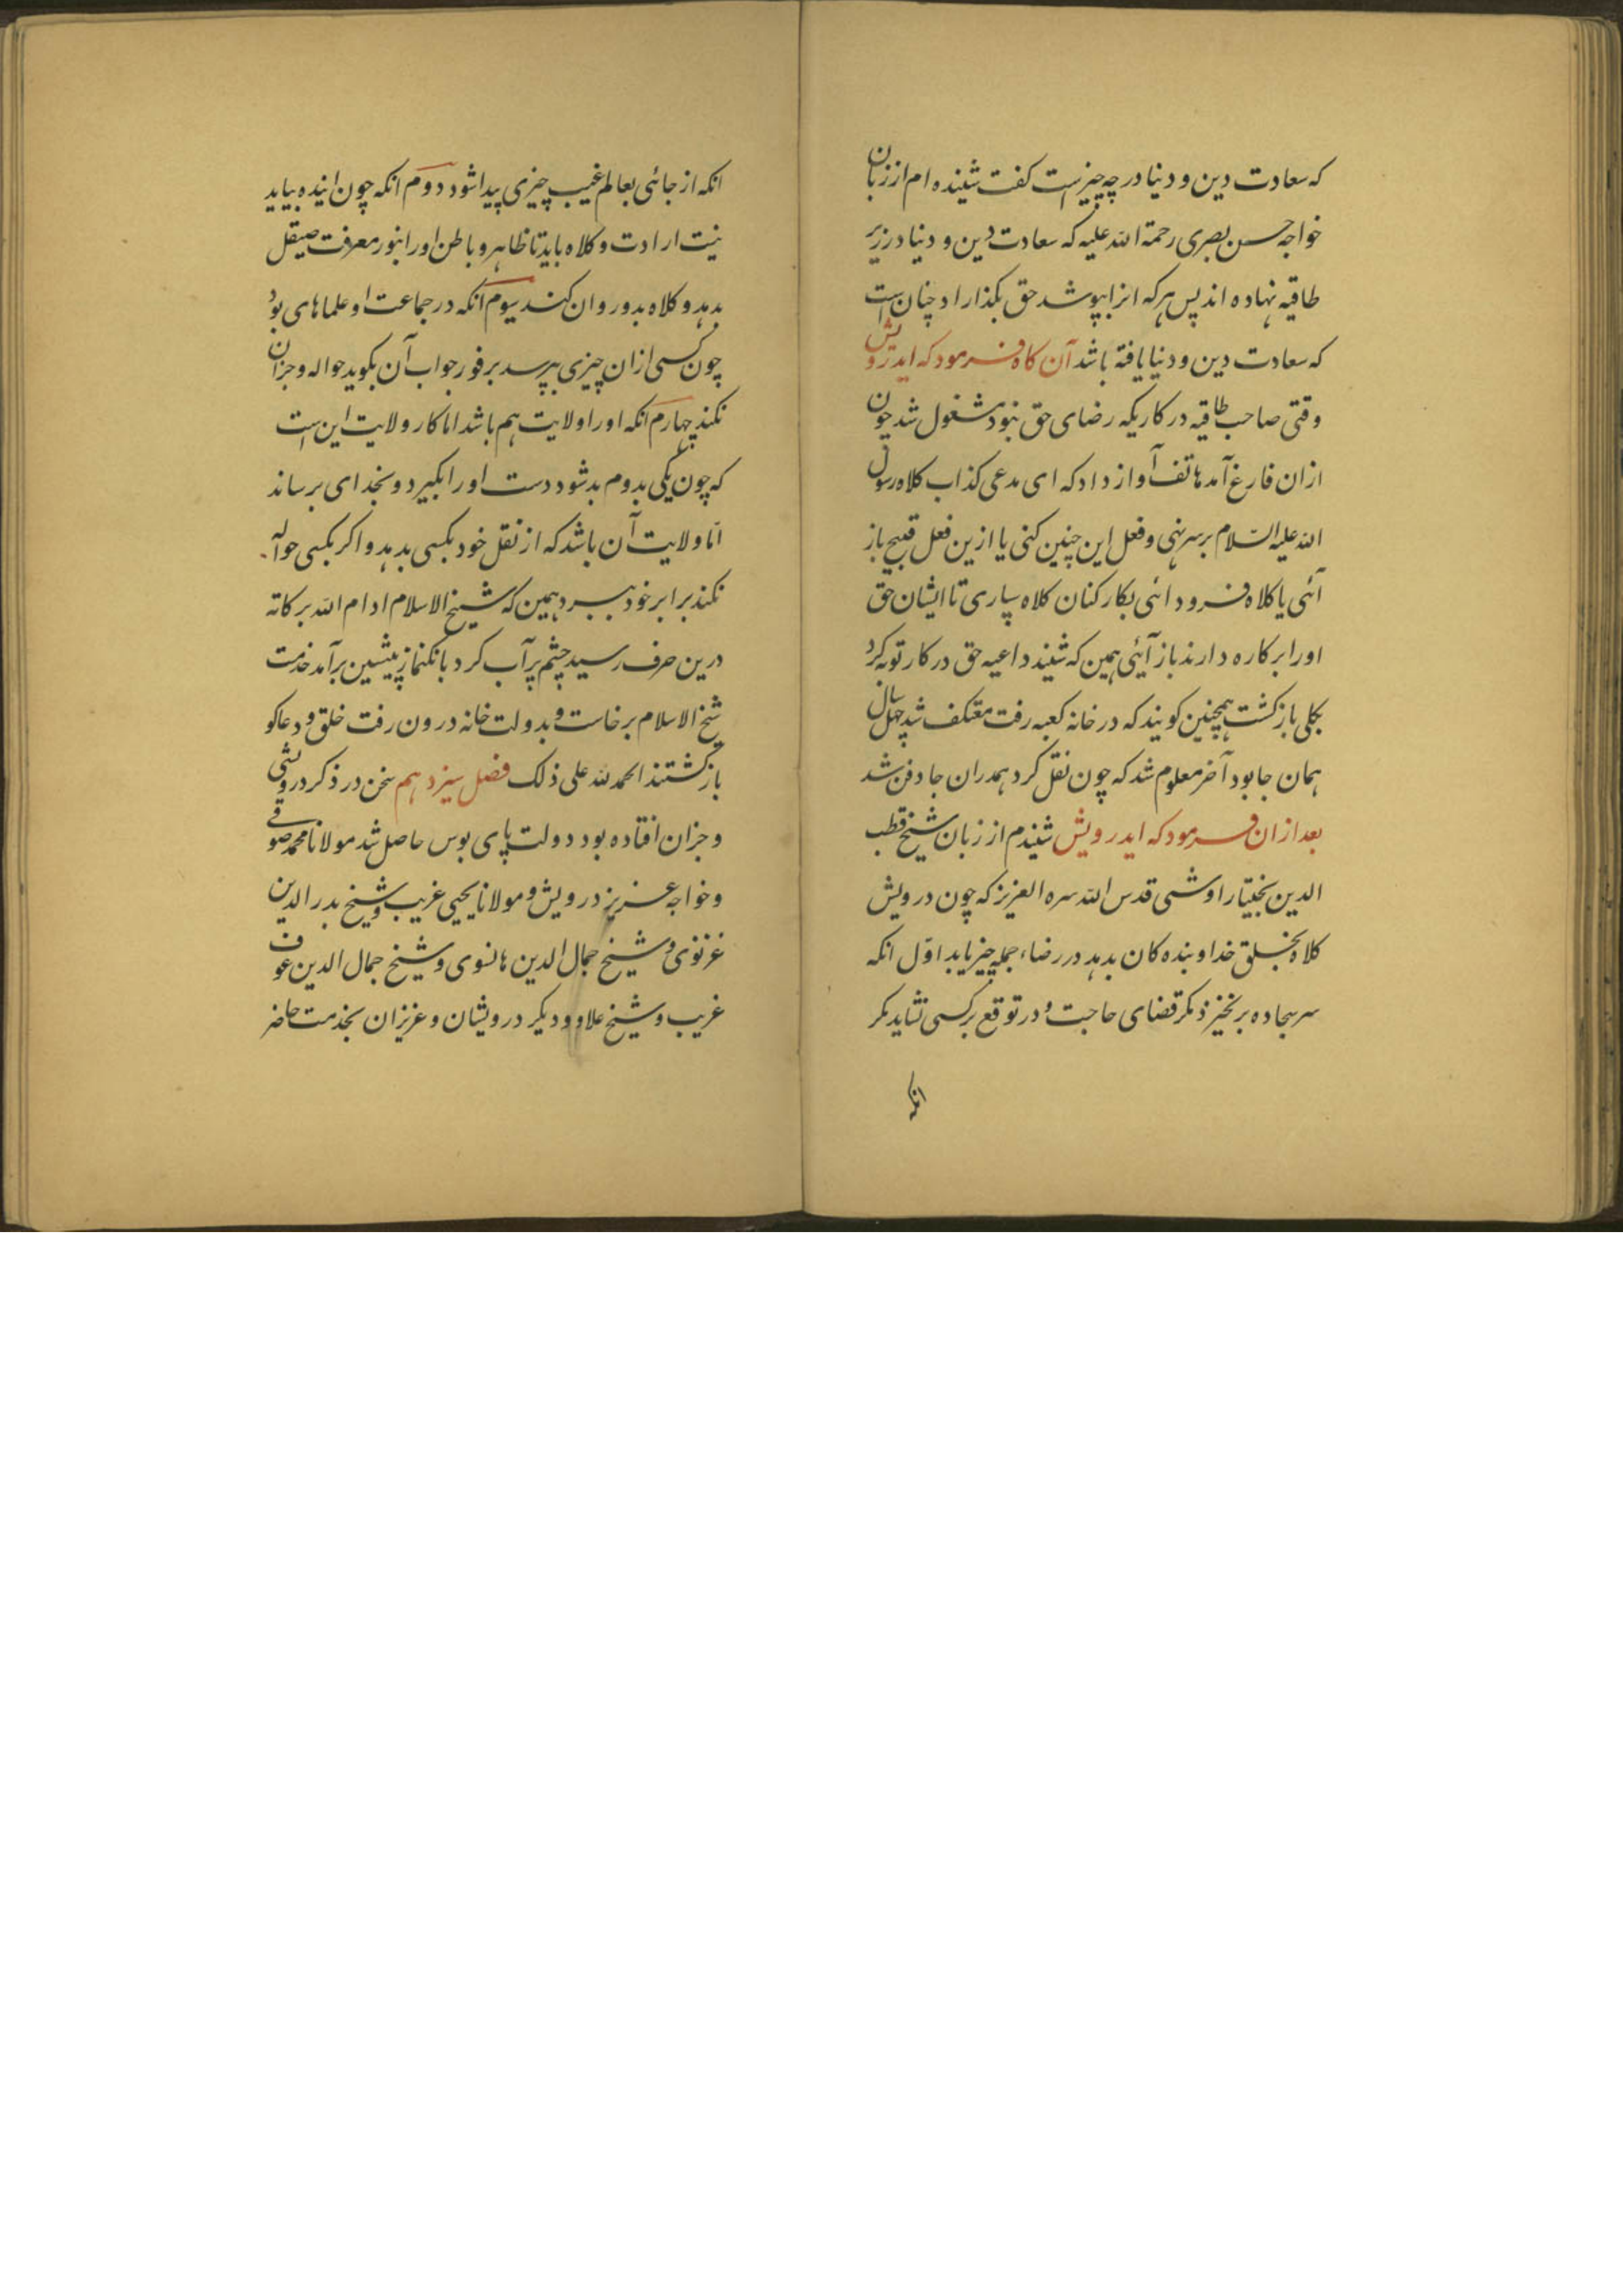 که سعادت دین و دنیا در چه چیز است کفت شنیده ام از زبان
خواجه حسن بصری رحمة الله علیه که سعادت دین و دنیا در زیر
طاقیه نهاده اند پس هر که انرا بپوشد حق بکذارد او چنان است
که سعادت دین و دنیا یافته باشد آن کاه فرمود که ایدرویش
وقتی صاحب طاقیه در کاریکه رضای حق نبود مشغول شد چون
ازان فارغ آمد هاتف آواز داد که ای مدعی کذاب کلاه رسول
الله علیه السلام بر سر نهی و فعل این چنین کنی یا ازین فعل قبیح باز
آئی یا کلاه فرود ائی بکار کنان کلاه سپاری تا ایشان حق
اورا بر کاره دارند باز آئی همین که شنید داعیه حق در کار توبه کرد
بکلی باز کشت همچنین کویند که در خانه کعبه رفت معتکف شد چهل سال
همان جا بود آخر معلوم شد که چون نقل کرد همدران جا دفن شد
بعد ازان فرمود که ایدرویش شنیدم از زبان شیخ قطب
الدین بختیار اوشی قدس الله سره العزیز که چون درویش
کلاه بخلق خدا و بنده کان بدهد در رضاء جمله چیز یابد اوّل انکه
سر سجاده بر نخیزد مکر قضای حاجت و در توقع بر کسی نشاید مکر
انکه
انکه از جائی بعالم غیب چیزی پیدا شود دوم انکه چون اینده بیاید
نیت ارادت و کلاه باید تا ظاهر و باطن او را بنور معرفت صیقل
بدهد و کلاه بدو روان کند سیوم آنکه در جماعت او علماهای بود
چون کسی ازان چیزی بپرسد بر فور جواب آن بکوید حواله و جزان
نکند چهارم انکه اورا ولایت هم باشد اما کار ولایت این است
که چون یکی بدوم بد شود دست او را بکیرد و بخدای برساند
امّا ولایت آن باشد که از نقل خود بکسی بدهد و اکر بکسی حواله
نکند برابر خود ببرد همین که شیخ الاسلام ادام الله برکاته
درین حرف رسید چشم پر آب کرد بانک نماز پیشین برآمد خدمت
شیخ الاسلام برخاست و بدولت خانه درون رفت خلق و دعاکو
باز کشتند الحمد لله علی ذلک فصل سیزدهم سخن در ذکر درویشی
و جزان افتاده بود دولت پای بوس حاصل شد مولانا محمد صوفی
و خواجه عزیز درویش و مولانا یحیی غریب و شیخ بدر الدین
غزنوی و شیخ جمال الدین هانسوی و شیخ جمال الدین عوف
غریب و شیخ علاو و دیکر درویشان و عزیزان بخدمت حاضر